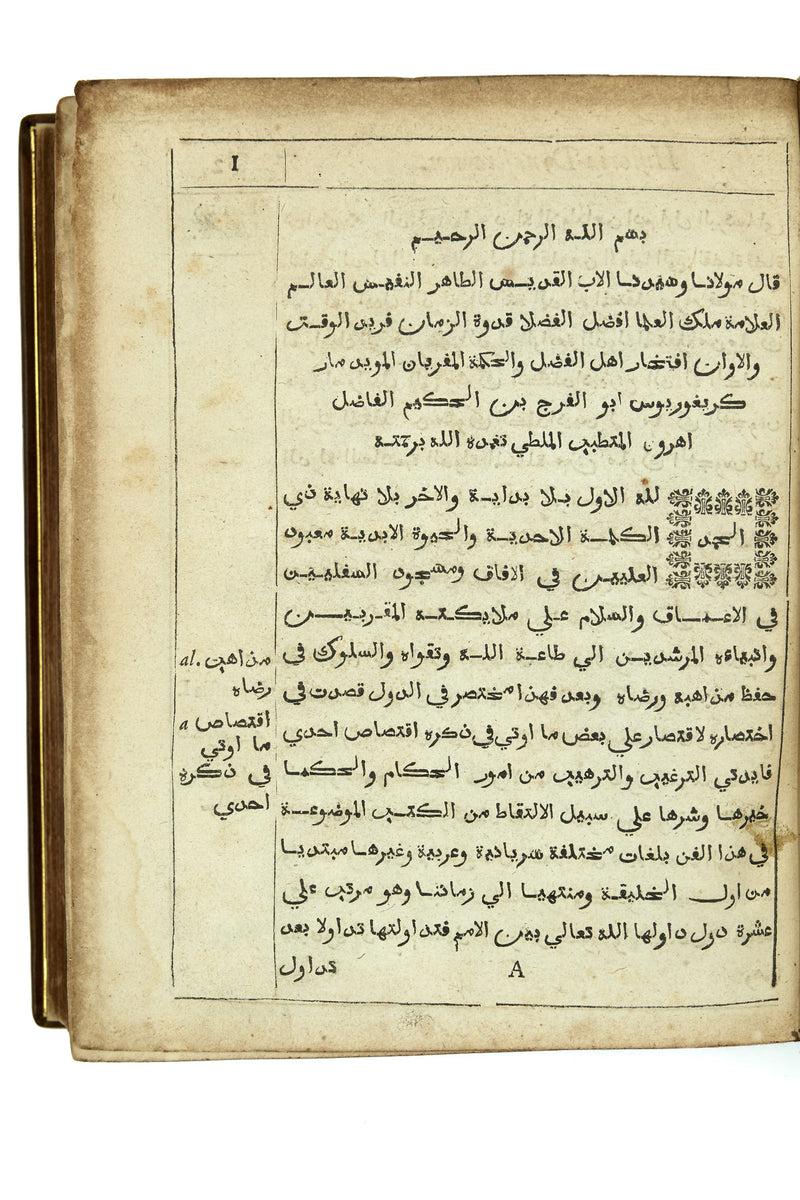 I
بسم الله الرحمن الرحيم
قال مولانا وسيدنا الاب القديس الطاهر النفيس العالم
العلامة ملك العلما افضل الفضلا قدوة الزمان فريد الوقت
والاوان افتخار اهل الفضل والحكمة المفريان المويد مار
كريغوريوس ابو الفرج بن الحكيم الفاضل
اهرون المتطبب الملطي تغمده الله برحمته
الحمد لله الاول بلا بداية والاخر بلا نهاية ذي
الكلمة الاحدية والحيوة الابدية معبود
العليين في الافاق ومسجود السفليين
في الاعماق والسلام علي ملايكته المقربين
وانبياءه المرشدين الي طاعة الله وتقواه والسلوك في
حفظ مذاهبه ورضاه وبعد فهذا مختصر في الدول قصدت في
اختصاره لاقتصار علي بعض ما اوتي في ذكره اقتصاص احدي
فايدتي الترغيب والترهيب من امور الحكام والحكما
خيرها وشرها علي سبيل الالتقاط من الكتب الموضوعة
في هذا الفن بلغات مختلفة سريانية وعربية وغيرها مبتديا
من اول الخليقة ومنتهيا الي زماننا وهو مرتب علي
عشرة دول داولها الله تعالي بين الامم فتداولتها تداولا بعد
تداول
A
al. مذاهب
رضاه
a اقتصاص
ما اوتي
في ذكره
احدي